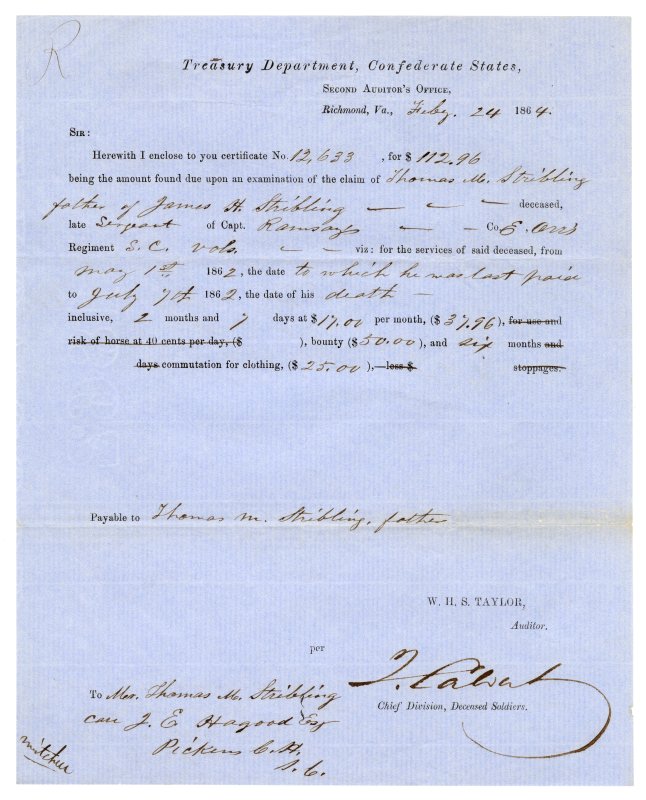 R
Treasury Department, Confederate States,
Second Auditor's Office,
Richmond, Va., Feby. 24 1864.
Sir:
Herewith I enclose to you certificate No. 12,633 , for $ 112.96
being the amount found due upon an examination of the claim of Thomas M. Stribling
father of James H. Stribling — — — deceased,
late Sergeant of Capt. Ramsays — — Co. E. Orrs
Regiment S. C. Vols. — — viz: for the services of said deceased, from
May 1st 1862, the date to which he was last paid
to July 7th 1862, the date of his death —
inclusive, 2 months and 7 days at $17.00 per month, ($37.96), for use and
risk of horse at 40 cents per day, ($ ), bounty ($50.00), and six months and
days commutation for clothing, ($25.00), less $ stoppages.
Payable to Thomas M. Stribling, father
W. H. S. TAYLOR,
Auditor.
per
J. Calvert
Chief Division, Deceased Soldiers.
To Mr. Thomas M. Stribling
care J. E. Hagood Esq
Pickens C. H.
S. C.
Mitchell